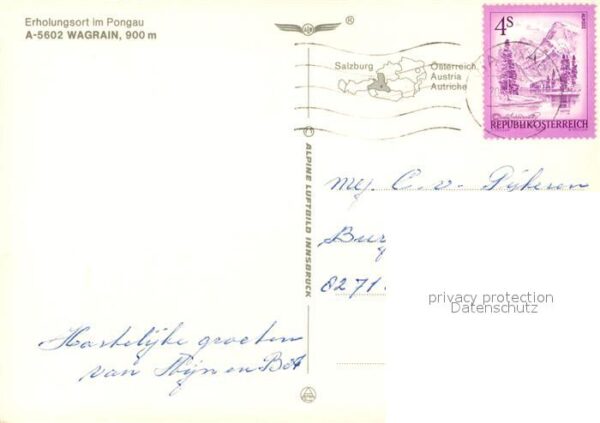 Erholungsort im Pongau
A-5602 WAGRAIN, 900 m
®
Salzburg
Österreich
Austria
Autriche
4S
ALMSEE
REPUBLIK ÖSTERREICH
ALPINE LUFTBILD INNSBRUCK
C. v.
6271
privacy protection
Datenschutz
Hartelijke groeten
van Thijn en Bet